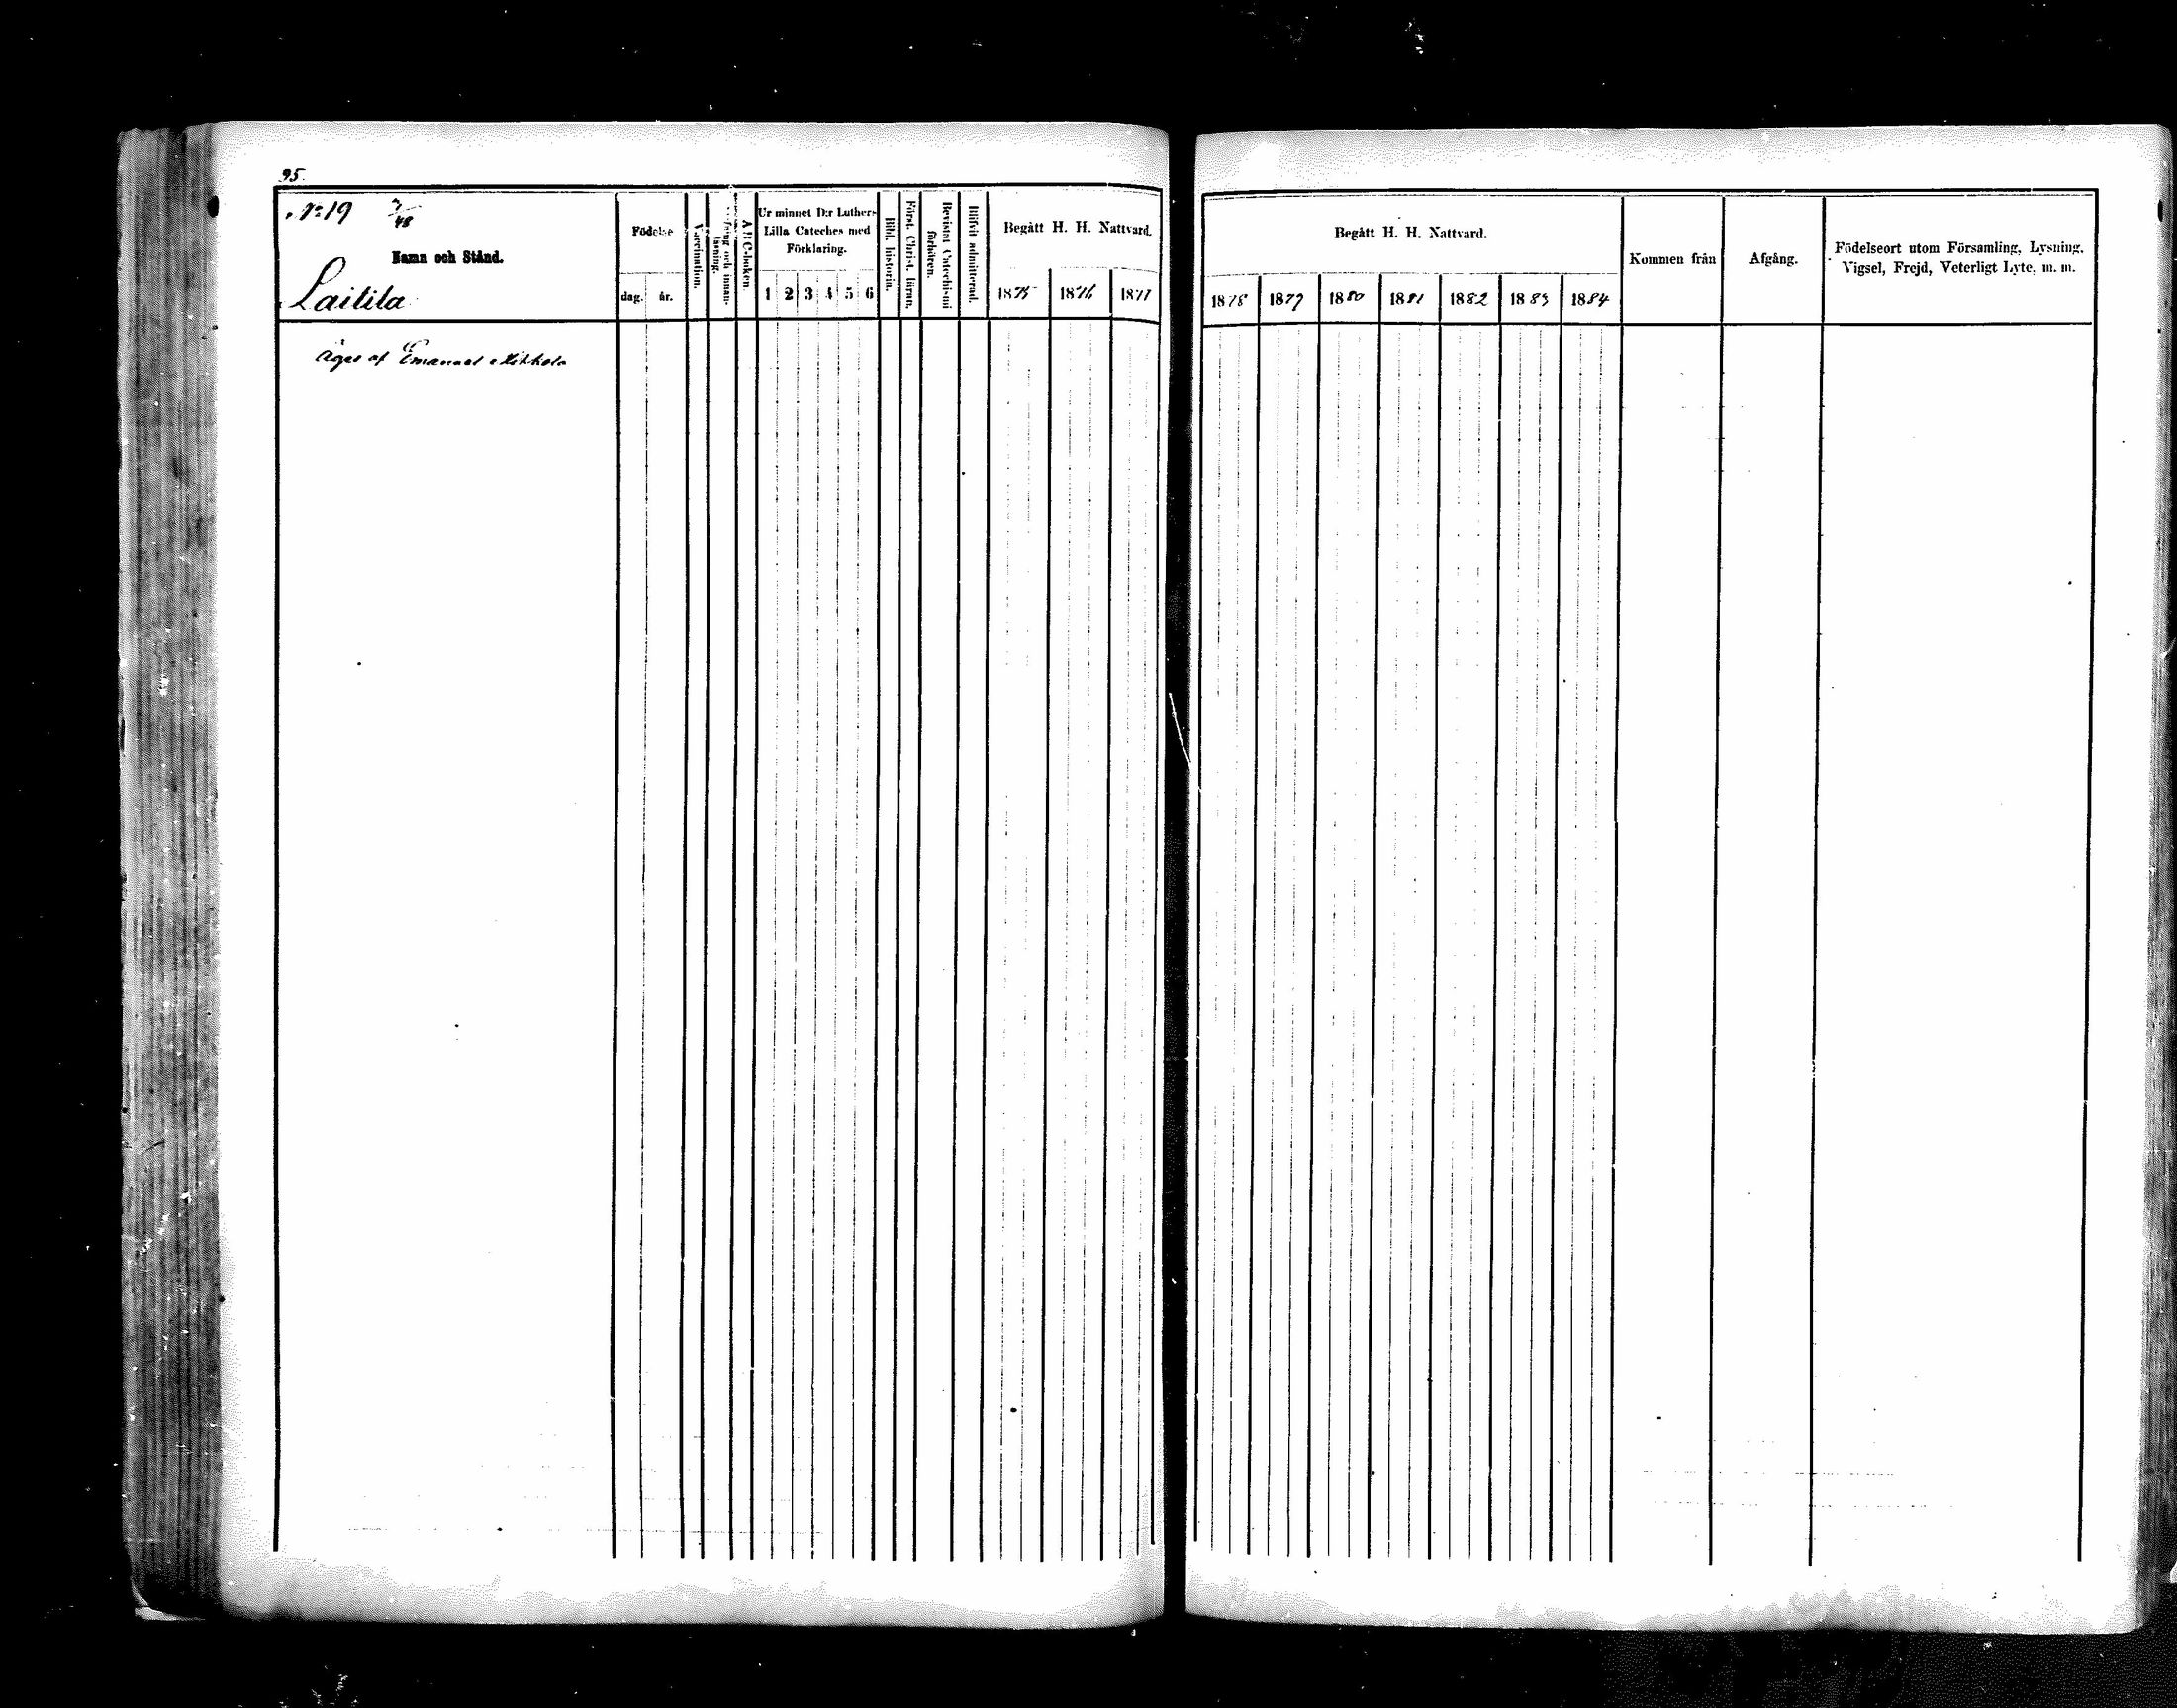 95.
N:o 19 7/48
Namn och Stånd.
Laitila
Födelse
dag. år.
Vaccination.
läsning.
ABC-boken.
Ur minnet D:r Luthers
Lilla Cateches med
Förklaring.
1 2 3 4 5 6
Bibl. historia.
Först. Christ. läran.
Bevistat Catechismi
förhören.
Blifvit admitterad.
Begått H. H. Nattvard.
1875 1876 1877
Begått H. H. Nattvard.
1878 1879 1880 1881 1882 1883 1884
Kommen från
Afgång.
Födelseort utom Församling, Lysning,
Vigsel, Frejd, Veterligt Lyte, m. m.
Äges af Emanuel Mikkola